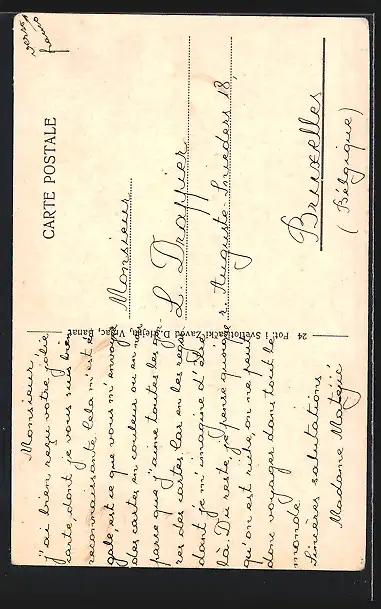 verso
franco
CARTE POSTALE
Monsieur
L. Drappier
r. Auguste Snieders 18,
Bruxelles
(Belgique)
24 Fot. i Svetlotisački Zavod D. Vršac, Banat
Monsieur
j'ai bien reçu votre jolie
carte, dont je vous suis bien
reconnaissante. Cela m'est é-
gale, est ce que vous m'envoyez
des cartes en couleur ou en noir
parse que j'aime toutes les
res des cartes. Car en les regar
dant je m'imagine d'être
là. Du reste, je pense quoi
qu'on est riche, on ne peut
donc voyager dans tout le
monde.
Sincères salutations
Madame